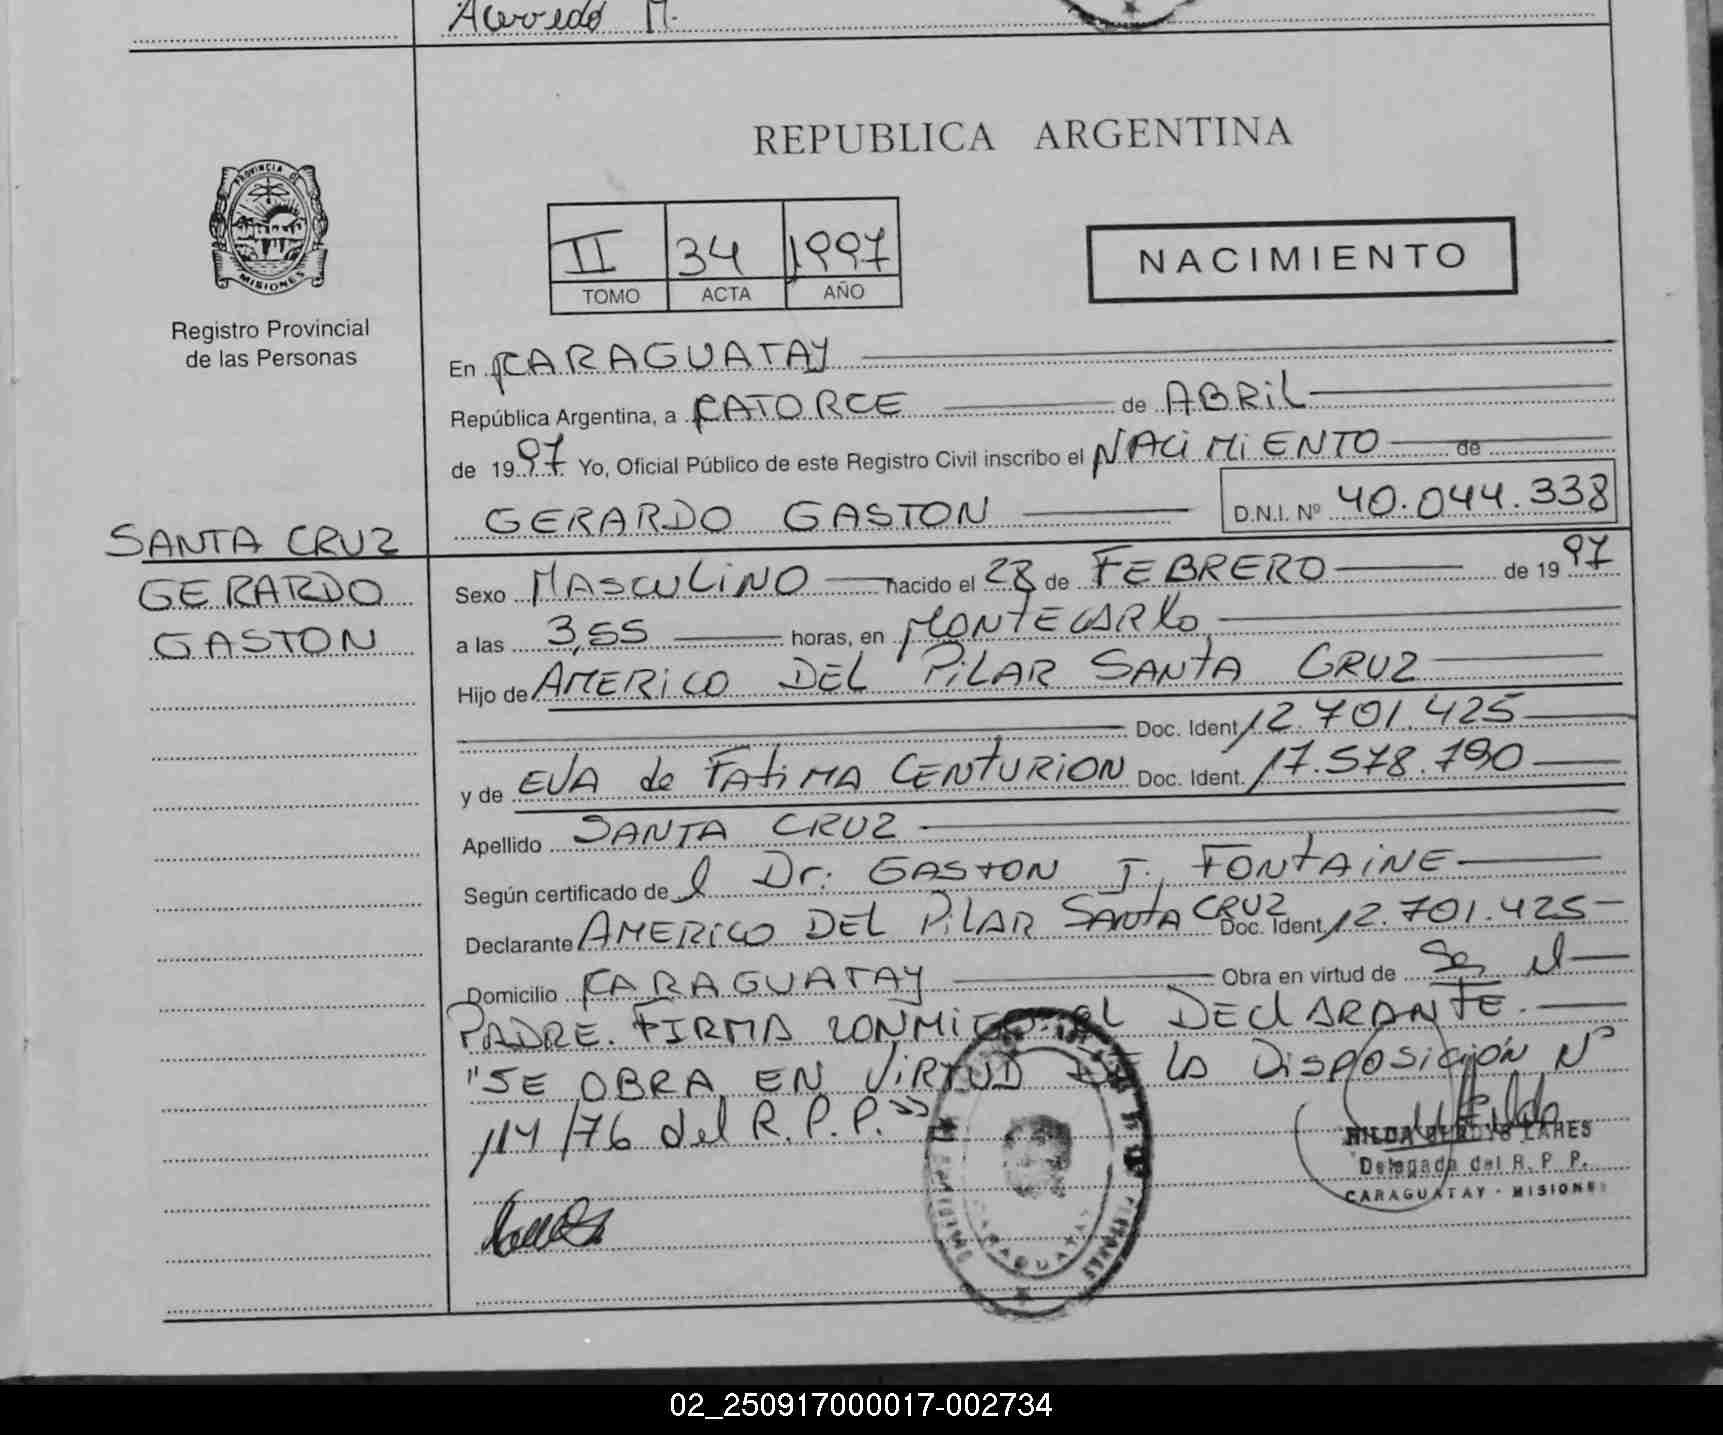 Acevedo M.
REPUBLICA ARGENTINA
PROVINCIA DE
MISIONES
Registro Provincial
de las Personas
II 34 1997
TOMO ACTA AÑO
NACIMIENTO
En CARAGUATAY
República Argentina, a CATORCE de ABRiL
de 1997 Yo, Oficial Público de este Registro Civil inscribo el NACiMiENTO de
GERARDO GASTON D.N.I. Nº 40.044.338
SANTA CRUZ
GERARDO
GASTON
Sexo MASCULiNO nacido el 28 de FEBRERO de 1997
a las 3,55 horas, en MONTECARLO
Hijo de AMERiCO DEL PiLAR SANTA CRUZ
Doc. Ident. 12.701.425
y de EVA de FATiMA CENTURION Doc. Ident. 17.578.790
Apellido SANTA CRUZ
Según certificado de l Dr. GASTON J. FONTAiNE
Declarante AMERICO DEL PiLAR SANTA CRUZ Doc. Ident. 12.701.425
Domicilio CARAGUATAY Obra en virtud de Ser el
PADRE. FIRMA CONMIGO EL DECLARANTE.
"SE OBRA EN VIRTUD DE LA DISPOSICIÓN Nº
114/76 del R.P.P."
CARAGUATAY
HILDA LARES
Delegada del R. P. P.
CARAGUATAY - MISIONES
02_250917000017-002734